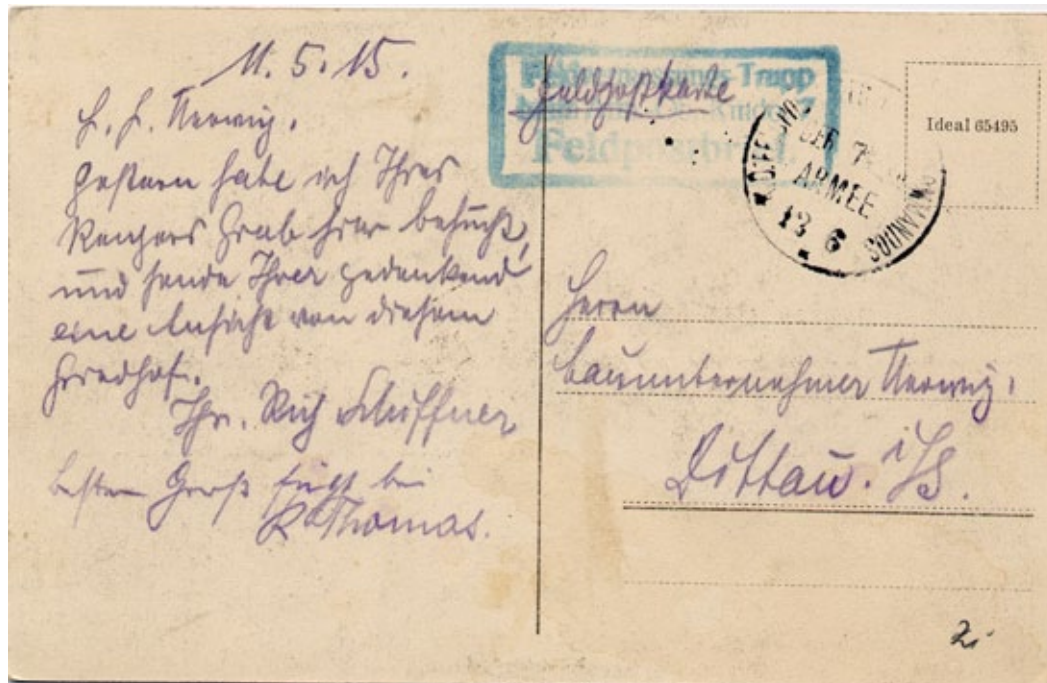 11. 5. 15.
Gestern habe ich Ihres
Grab hier besucht,
und sende Ihrer gedenkend
eine Ansicht von diesem
Friedhof.
Ihr. Rich
besten Gruß fügt bei
R Thomas.
Trupp
7
Feldpostbrief.
Feldpostkarte
DER 7.
ARMEE
13 6
Ideal 65495
Herrn
Bauunternehmer
Zittau. i/S.